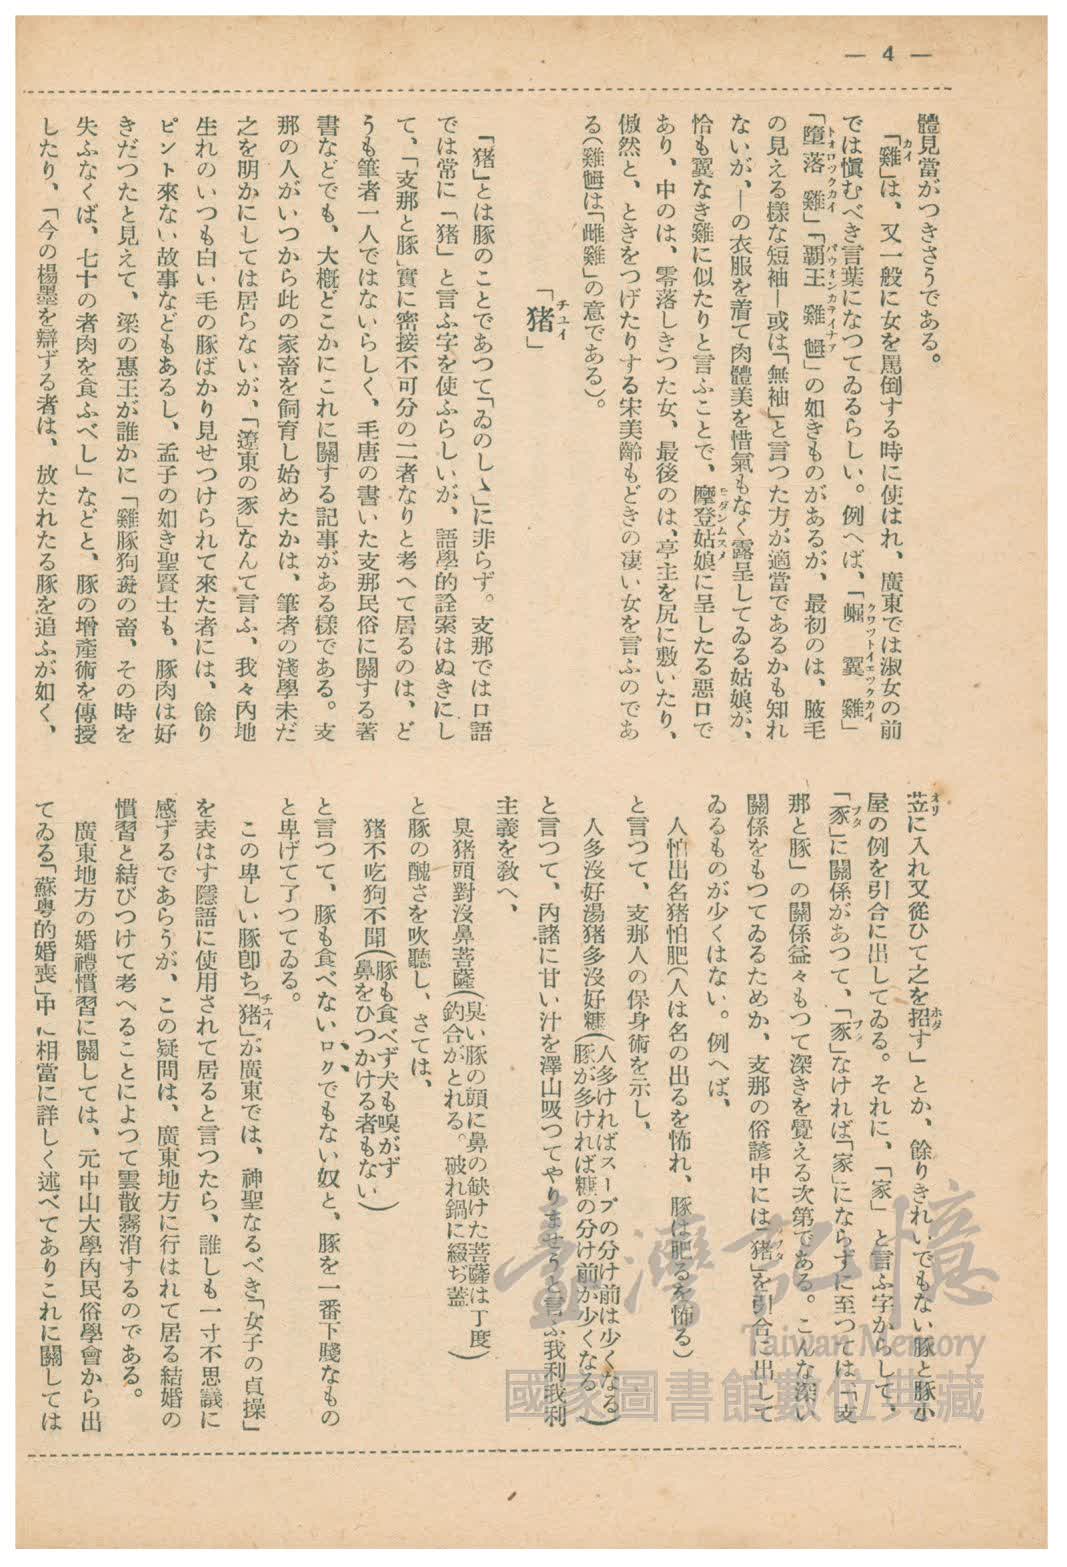 — 4 —
體見當がつきさうである。
「雞」は、又一般に女を罵倒する時に使はれ、廣東では淑女の前
では愼むべき言葉になつてゐるらしい。例へば、「崛翼雞」
「墮落雞」「覇王雞乸」の如きものがあるが、最初のは、腋毛
の見える樣な短袖―或は「無袖」と言つた方が適當であるかも知れ
ないが、―の衣服を着て肉體美を惜氣もなく露呈してゐる姑娘が、
恰も翼なき雞に似たりと言ふことで、摩登姑娘に呈したる惡口で
あり、中のは、零落しきつた女、最後のは、亭主を尻に敷いたり、
傲然と、ときをつげたりする宋美齡もどきの凄い女を言ふのであ
る（雞乸は「雌雞」の意である）。
「猪」
チユイ
「猪」とは豚のことであつて「ゐのしゝ」に非らず。支那では口語
では常に「猪」と言ふ字を使ふらしいが、語學的詮索はぬきにし
て、「支那と豚」實に密接不可分の二者なりと考へて居るのは、ど
うも筆者一人ではないらしく、毛唐の書いた支那民俗に關する著
書などでも、大槪どこかにこれに關する記事がある樣である。支
那の人がいつから此の家畜を飼育し始めたかは、筆者の淺學未だ
之を明かにしては居らないが、「遼東の豕」なんて言ふ、我々內地
生れのいつも白い毛の豚ばかり見せつけられて來た者には、餘り
ピント來ない故事などもあるし、孟子の如き聖賢士も、豚肉は好
きだつたと見えて、梁の惠王が誰かに「雞豚狗彘の畜、その時を
失ふなくば、七十の者肉を食ふべし」などと、豚の增產術を傳授
したり、「今の楊墨を辯ずる者は、放たれたる豚を追ふが如く、
苙に入れ又從ひて之を招す」とか、餘りきれいでもない豚と豚小
屋の例を引合に出してゐる。それに、「家」と言ふ字からして、
「豕」に關係があつて、「豕」なければ「家」にならずに至つては「支
那と豚」の關係益々もつて深きを覺える次第である。こんな深い
關係をもつてゐるためか、支那の俗諺中には「猪」を引合に出して
ゐるものが少くはない。例へば、
人怕出名猪怕肥（人は名の出るを怖れ、豚は肥るを怖る）
と言つて、支那人の保身術を示し、
人多沒好湯猪多沒好糠（人多ければスープの分け前は少くなる
豚が多ければ糠の分け前か少くなる）
と言つて、內諸に甘い汁を澤山吸つてやりませうと言ふ我利我利
主義を敎へ、
臭猪頭對沒鼻菩薩（臭い豚の頭に鼻の缺けた菩薩は丁度
釣合がとれる。破れ鍋に綴ぢ蓋）
と豚の醜さを吹聽し、さては、
猪不吃狗不聞（豚も食べず犬も嗅がず
鼻をひつかける者もない）
と言つて、豚も食べないロクでもない奴と、豚を一番下賤なもの
と卑げて了つてゐる。
この卑しい豚卽ち「猪」が廣東では、神聖なるべき「女子の貞操」
を表はす隱語に使用されて居ると言つたら、誰しも一寸不思議に
感ずるであらうが、この疑問は、廣東地方に行はれて居る結婚の
慣習と結びつけて考へることによつて雲散霧消するのである。
廣東地方の婚禮慣習に關しては、元中山大學內民俗學會から出
てゐる「蘇粤的婚喪」中に相當に詳しく述べてありこれに關しては
臺灣記憶
Taiwan Memory
國家圖書館數位典藏